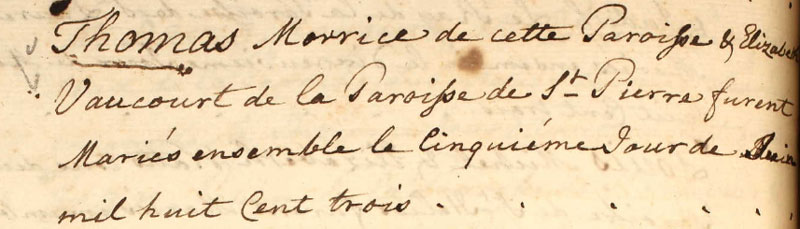 Thomas Morrice de cette Paroisse & Elizabeth
Vaucourt de la Paroisse de St. Pierre furent
Mariés ensemble le Cinquiéme Jour de Juin
mil huit Cent trois . . . . . .